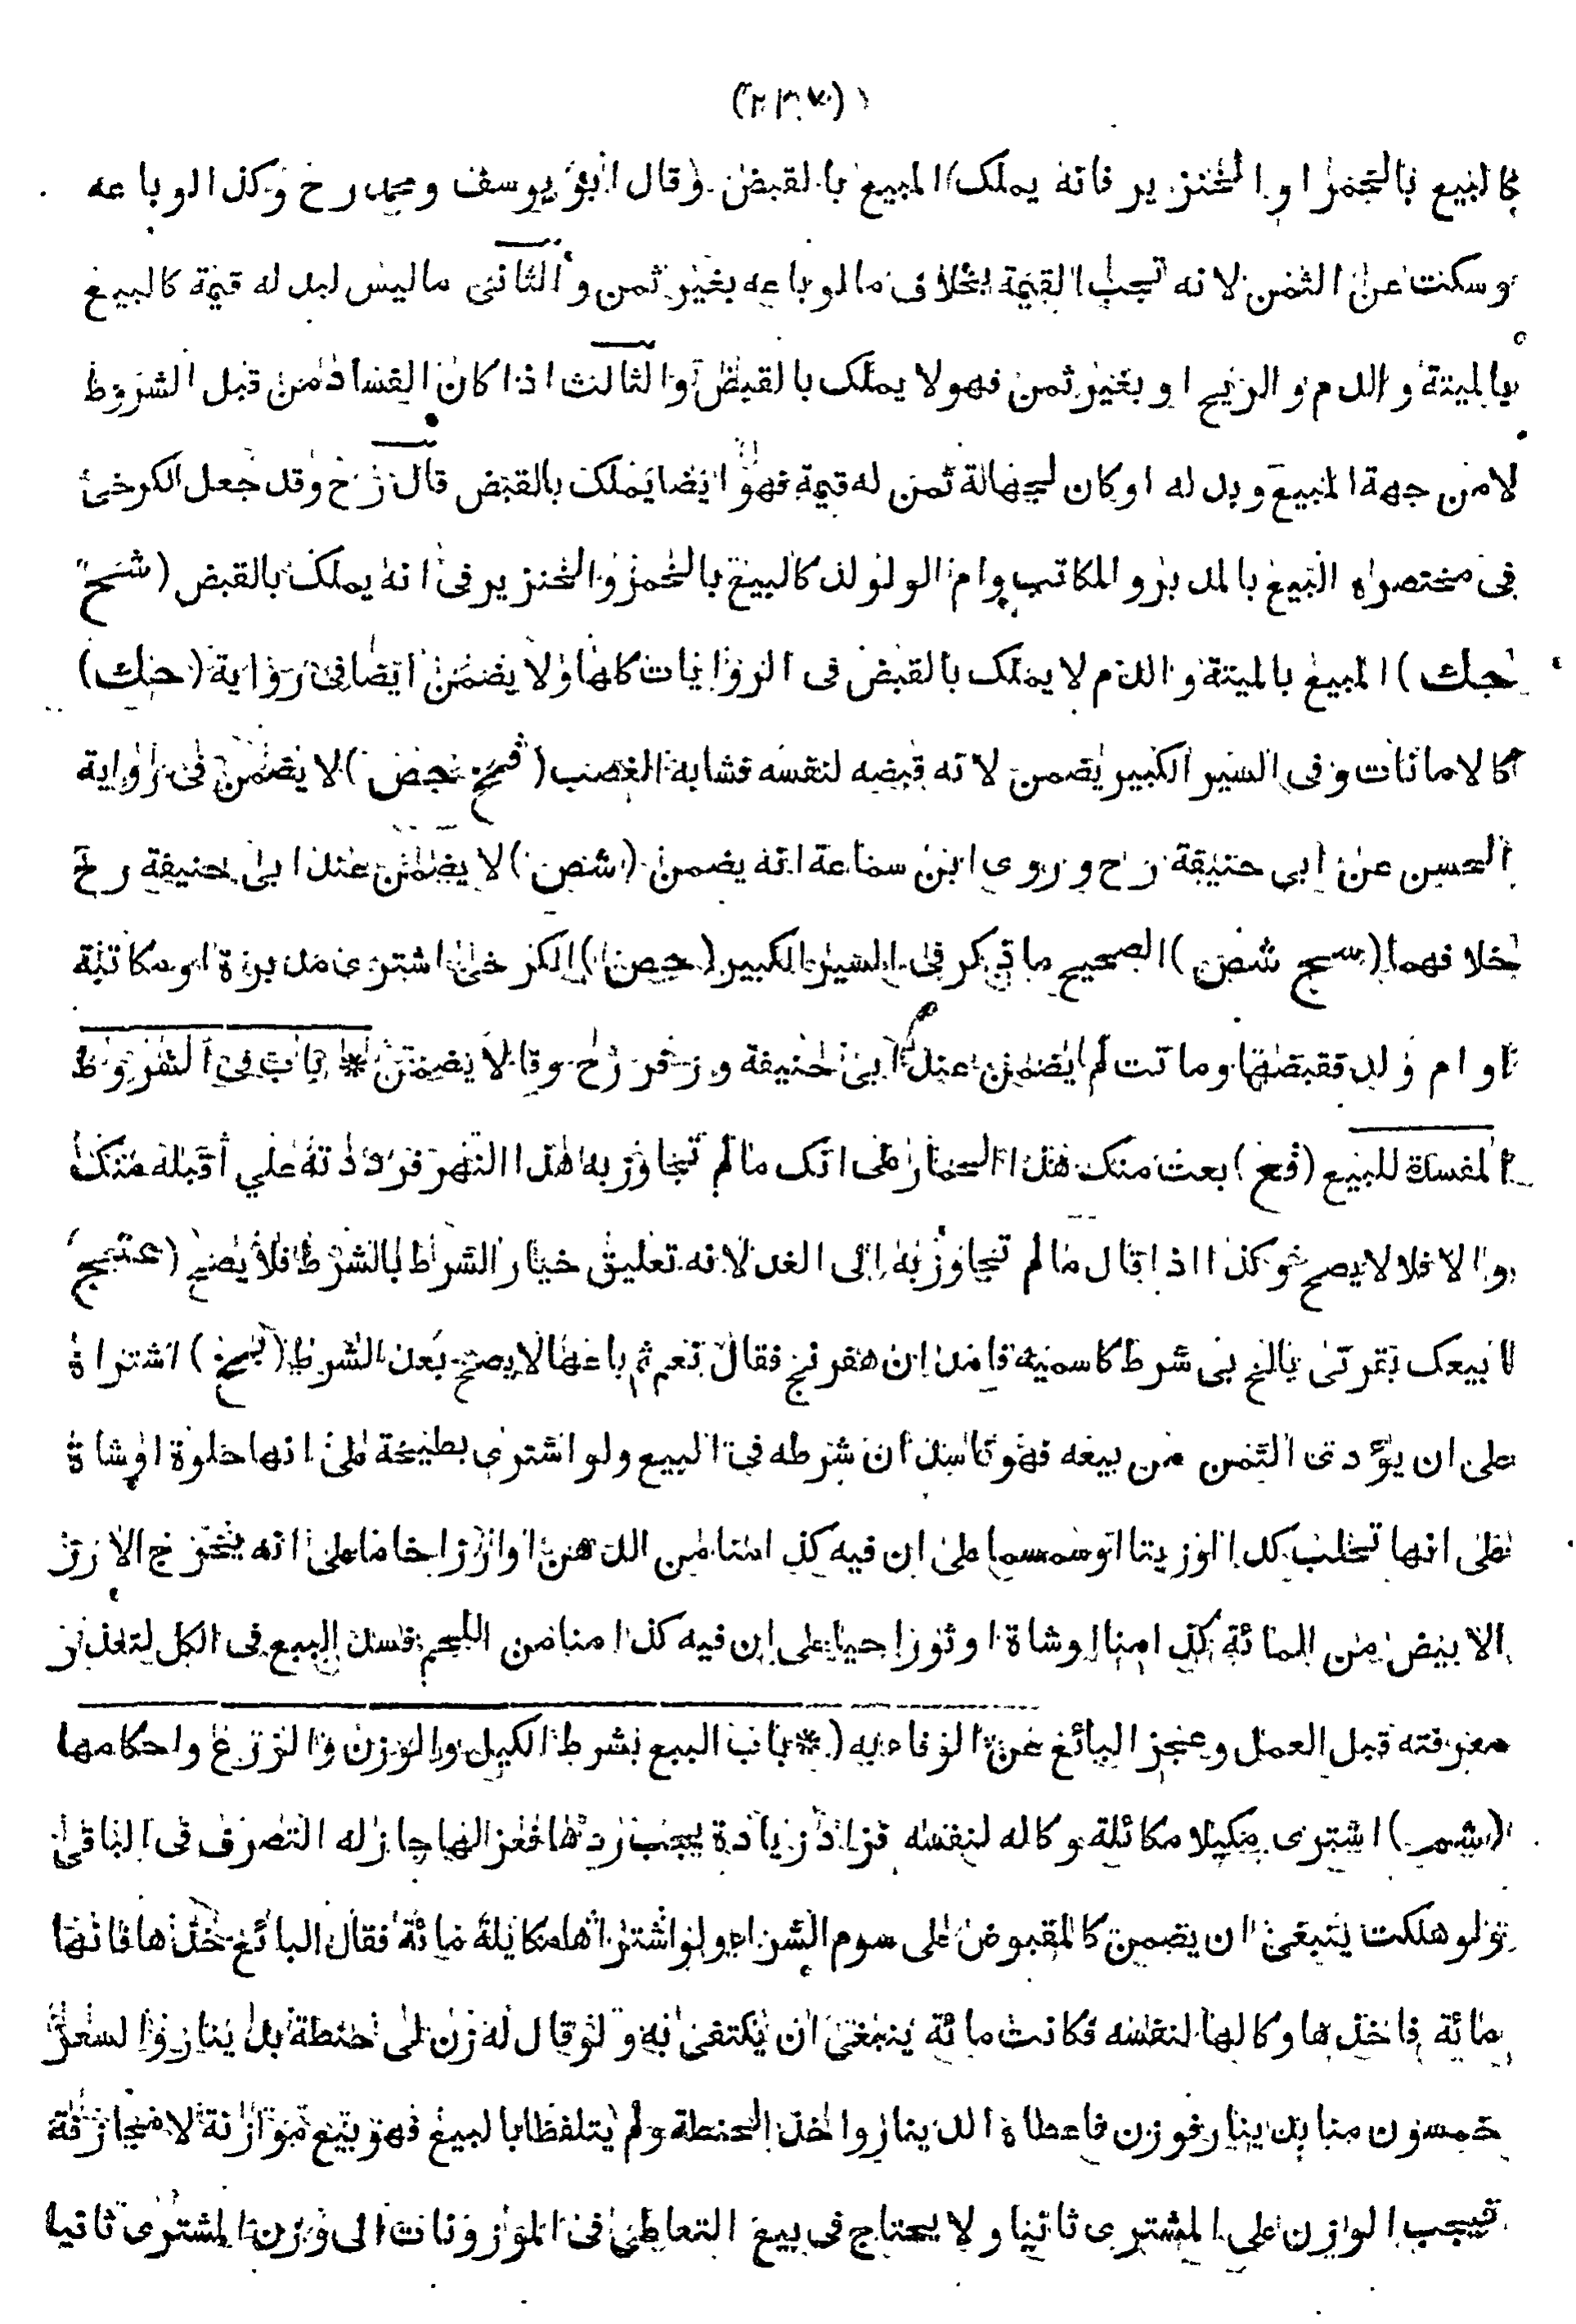 كالبيع بالخمر او الخنزير فانه يملك المبيع بالقبض وقال ابو يوسف ومحمد رح وكذا لو باعه
وسكت عن الثمن لانه تجب القيمة بخلاف ما لو باعه بغير ثمن والثانى ماليس لبدله قيمة كالبيع
بالميتة والدم والريح او بغير ثمن فهو لا يملك بالقبض والثالث اذا كان الفساد من قبل الشروط
لا من جهة المبيع وبدله او كان لجهالة ثمن له قيمة فهو ايضا يملك بالقبض قال رح وقد جعل الكرخى
فى مختصره البيع بالمدبر والمكاتب وام الولد كالبيع بالخمر والخنزير فى انه يملك بالقبض (شح
جك) المبيع بالميتة والدم لا يملك بالقبض فى الروايات كلها ولا يضمن ايضا فى رواية (جك)
كالامانات وفى السير الكبير يضمن لانه قبضه لنفسه فشابه الغصب (فخ نجض) لا يضمن فى رواية
الحسن عن ابى حنيفة رح وروى ابن سماعة انه يضمن (شص) لا يضمن عند ابى حنيفة رح
خلافهما (سج شص) الصحيح ما ذكر فى السير الكبير (حص) الكرخى اشترى مدبرة او مكاتبة
او ام ولد فقبضها وماتت لم يضمن عند ابى حنيفة وزفر رح وقالا يضمن * باب فى الشروط
المفسدة للبيع (فع) بعت منك هذا الحمار على انك مالم تجاوز به هذا النهر فرددته على أقبله منك
والا فلا لا يصح وكذا اذا قال مالم تجاوز به الى الغد لانه تعليق خيار الشرط بالشرط فلا يصح (عتجج)
لا يصح بعد الشرط (بخ) اشتراه
على ان يؤدى الثمن من بيعه فهو فاسد ان شرطه فى البيع ولو اشترى بطيخة على انها حلوة او شاة
على انها تحلب كذا او زيتا او سمسما على ان فيه كذا امنا من الدهن او ارزا خاما على انه يخرج الارز
الابيض من المائة كذا امنا او شاة او ثورا حيا على ان فيه كذا منا من اللحم فسد البيع فى الكل لتعذر
معرفته قبل العمل وعجز البائع عن الوفاء به * باب البيع بشرط الكيل والوزن والزرع واحكامها
(شم) اشترى مكيلا مكائلة وكاله لنفسه فزاد زيادة يجب ردها فعزلها جاز له التصرف فى الباقى
ولو هلكت ينبغى ان يضمن كالمقبوض على سوم الشراء ولو اشتراها مكايلة مائة فقال البائع خذها فانها
مائة فاخذها وكالها لنفسه فكانت مائة ينبغى ان يكتفى به ولو قال له زن لى حنطة بدينار والسعر
خمسون منا بدينار فوزن فاعطاه الدينار واخذ الحنطة ولم يتلفظا بالبيع فهو بيع موازنة لا مجازفة
فيجب الوزن على المشترى ثانيا ولا يحتاج فى بيع التعاطى فى الموزونات الى وزن المشترى ثانيا